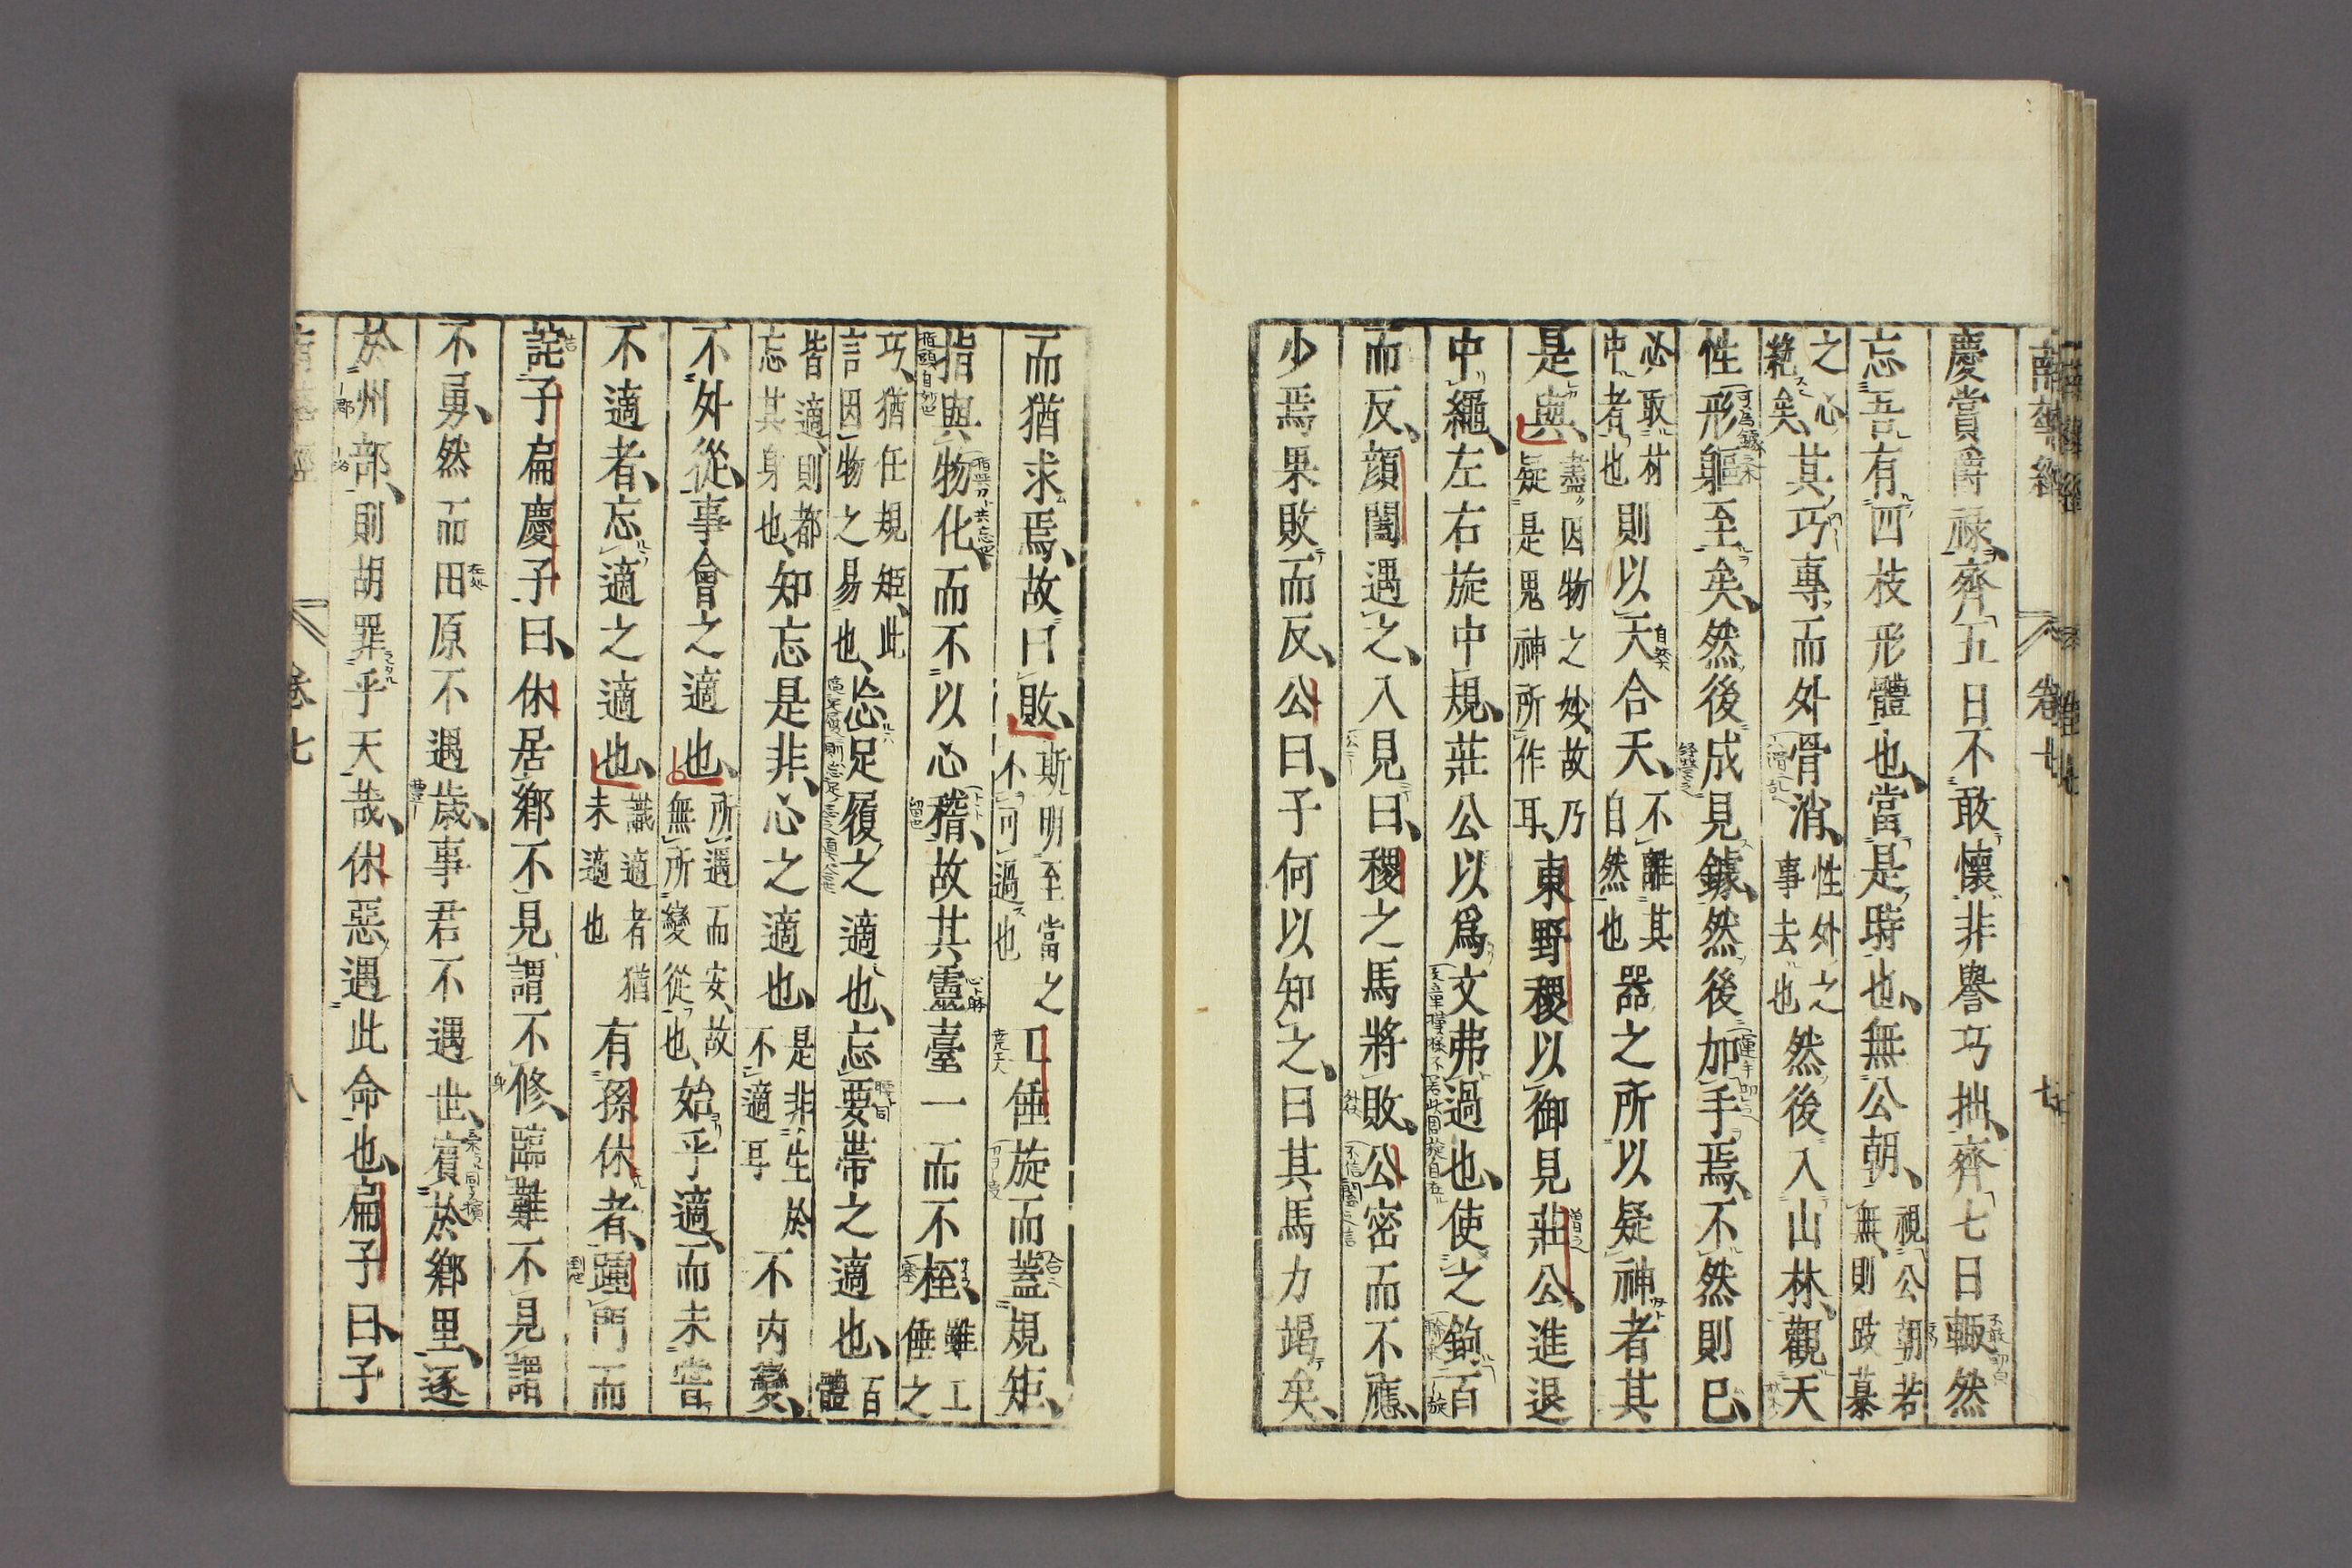 南華經 卷七 七
慶賞爵祿齊五日不敢懷非譽巧拙齊七日輙然
忘吾有四枝形體也當是時也無公朝視公朝若無則跂慕
之心絶矣其巧專而外骨消性外之事去也然後入山林觀天
性形軀至矣然後成見鐻然後加手焉不然則已
必取材中者也則以天合天不離其自然也器之所以疑神者其
是與盡因物之妙故乃疑是鬼神所作耳東野稷以御見莊公進退
中繩左右旋中規莊公以爲文弗過也使之鉤百
而反顔闔遇之入見曰稷之馬將敗公密而不應
少焉果敗而反公曰子何以知之曰其馬力竭矣
而猶求焉故曰敗斯明至當之不可過也工倕旋而蓋規矩
指與物化而不以心稽故其靈臺一而不桎雖工倕之
巧猶任規矩此言因物之易也忘足履之適也忘要帶之適也百體
皆適則都忘其身也知忘是非心之適也是非生於不適耳不内變
不外從事會之適也所遇而安故無所變從也始乎適而未嘗
不適者忘適之適也識適者猶未適也有孫休者踵門而
詫子扁慶子曰休居鄉不見謂不修臨難不見謂
不勇然而田原不遇歳事君不遇世賓於鄉里逐
於州部則胡罪乎天哉休惡遇此命也扁子曰子
卷七 八